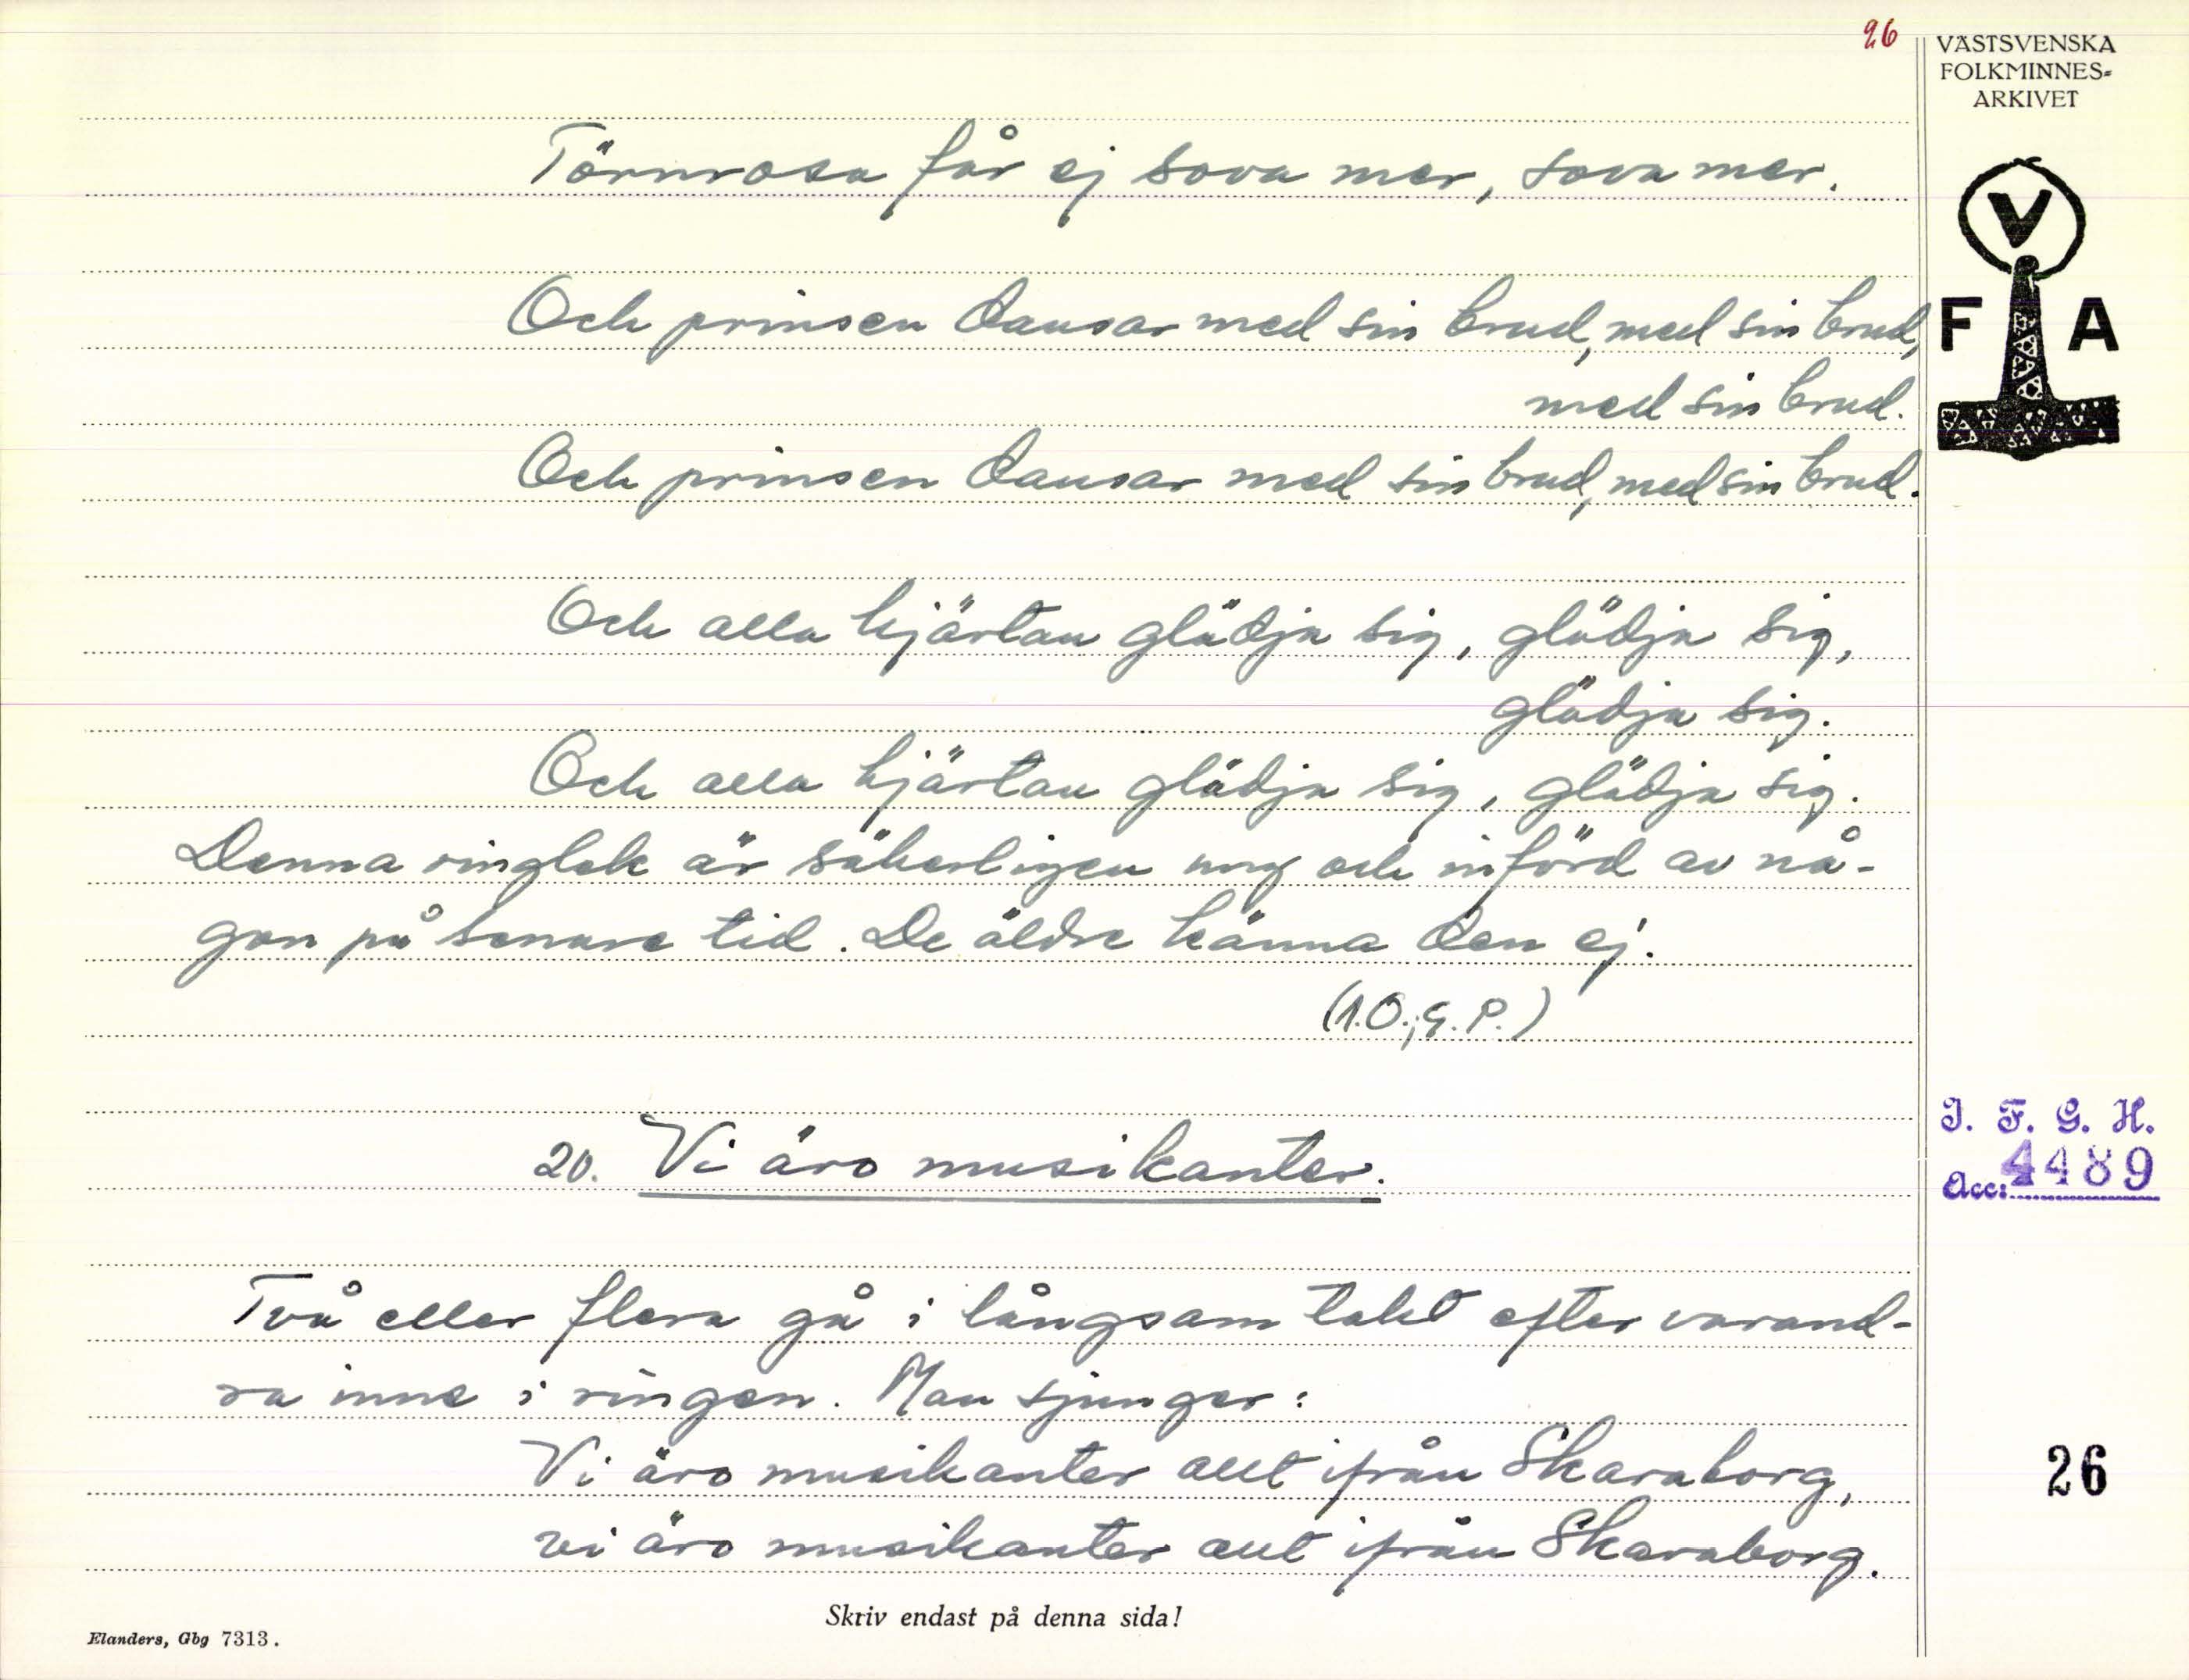 26
VÄSTSVENSKA
FOLKMINNES=
ARKIVET
V
F A
Törnrosa får ej sova mer, sova mer.
Och prinsen dansar med sin brud, med sin brud,
med sin brud.
Och prinsen dansar med sin brud, med sin brud.
Och alla hjärtan glädja sig, glädja sig,
glädja sig.
Och alla hjärtan glädja sig, glädja sig.
Denna ringlek är säkerligen ung och införd av nå-
gon på senare tid. De äldre känna den ej.
(A.O.; G.P.)
20. Vi äro musikanter.
Två eller flera gå i långsam takt efter varand-
ra inne i ringen. Man sjunger:
Vi äro musikanter allt ifrån Skaraborg,
vi äro musikanter allt ifrån Skaraborg.
I. F. G. H.
Acc: 4489
26
Skriv endast på denna sida!
Elanders, Gbg 7313.